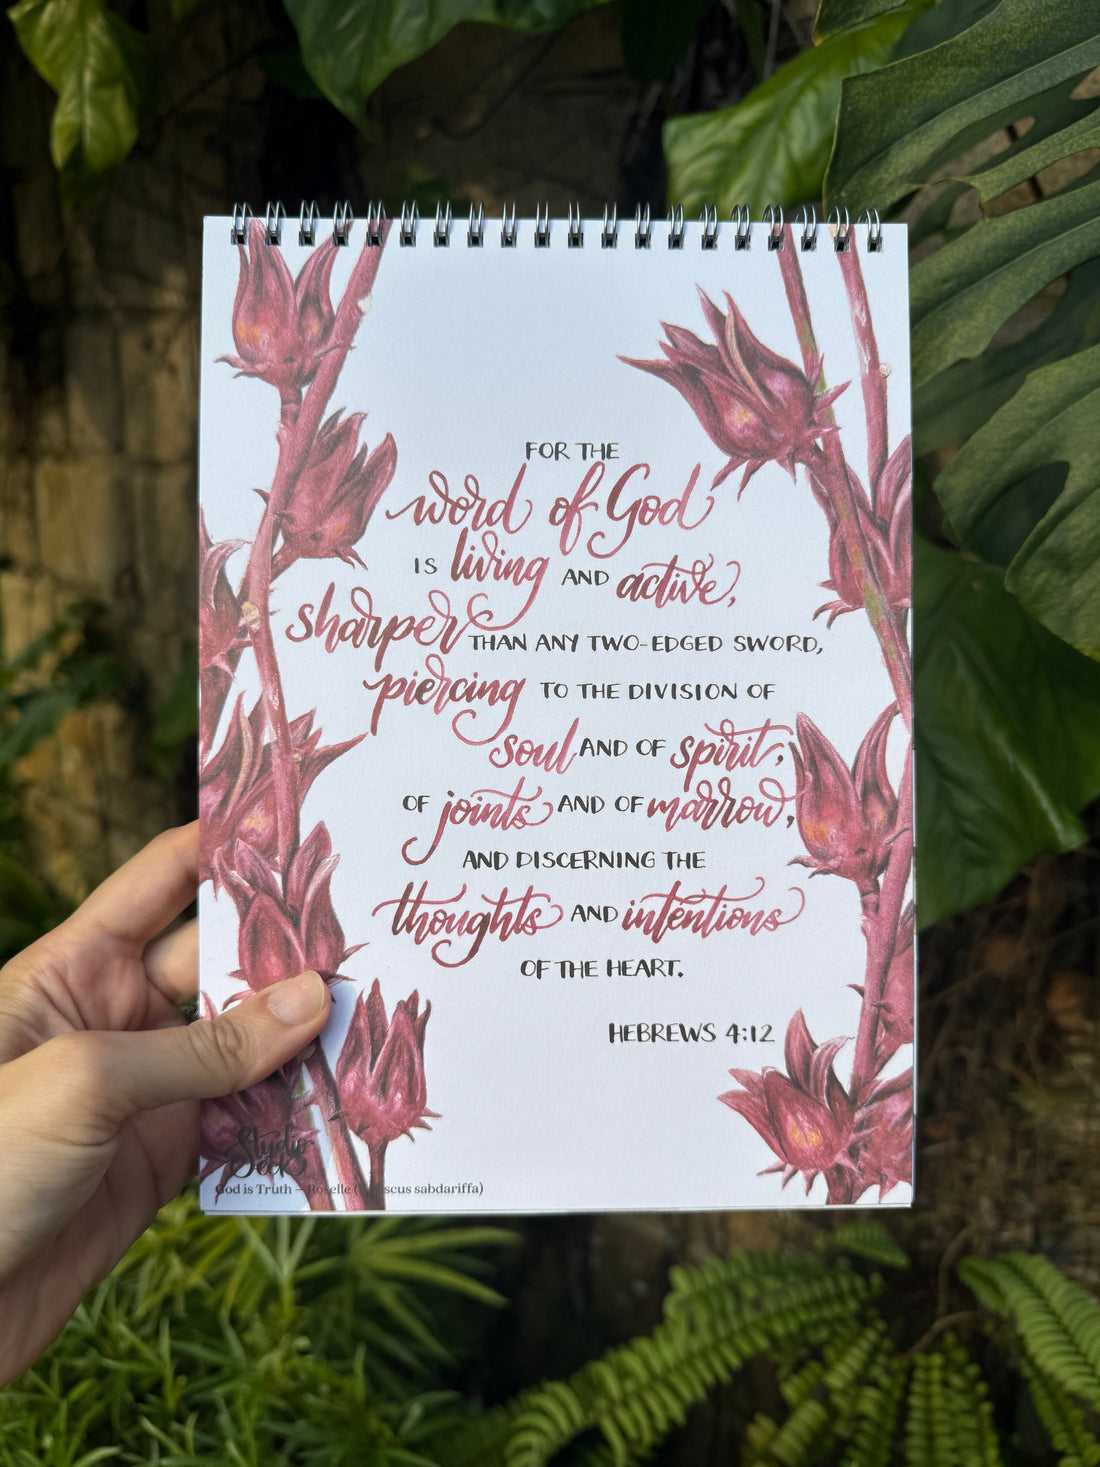 FOR THE
word of God
IS living AND active,
sharper THAN ANY TWO-EDGED SWORD,
piercing TO THE DIVISION OF
soul AND OF spirit,
OF joints AND OF marrow,
AND DISCERNING THE
thoughts AND intentions
OF THE HEART.
HEBREWS 4:12
Studio
God is Truth – Roselle sabdariffa)